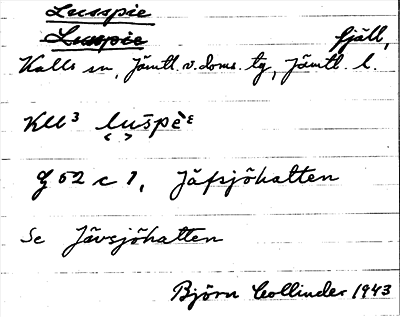 Lusspie
Luspie fjäll,
Kalls sn, Jämtl. v. doms. tg, Jämtl. l.
Kll³
G 52 c 1, Jäfsjöhatten
Se Jävsjöhatten
Björn Collinder 1943